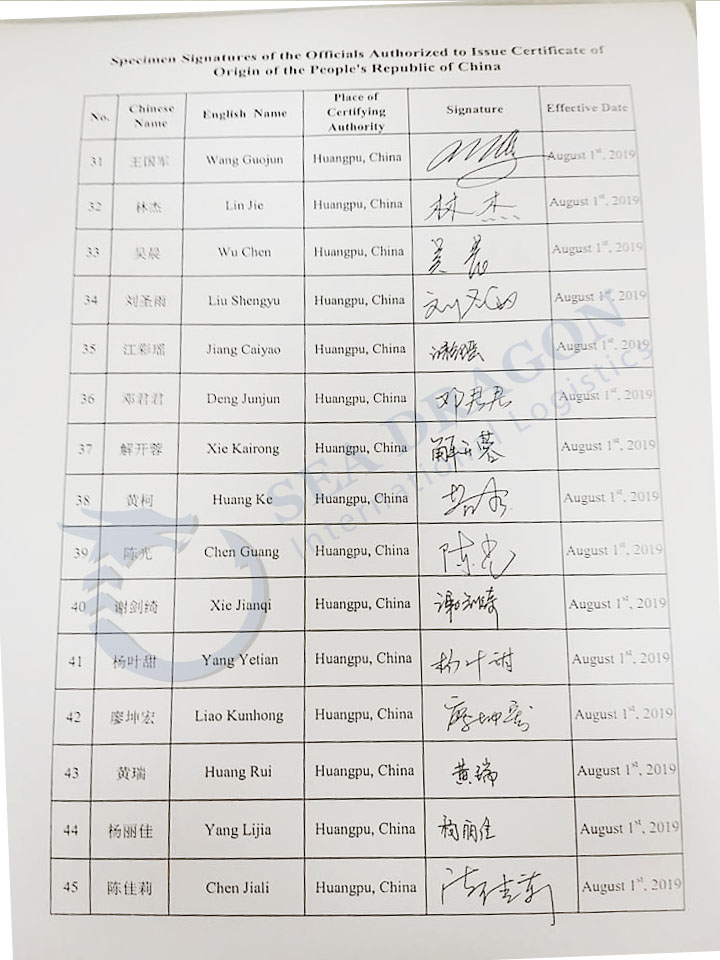 Specimen Signatures of the Officials Authorized to Issue Certificate of
Origin of the People's Republic of China
No. Chinese Name English Name Place of Certifying Authority Signature Effective Date
31 王国军 Wang Guojun Huangpu, China August 1st, 2019
32 林杰 Lin Jie Huangpu, China 林杰 August 1st, 2019
33 吴晨 Wu Chen Huangpu, China 吴晨 August 1st, 2019
34 刘圣雨 Liu Shengyu Huangpu, China August 1st, 2019
35 江彩瑶 Jiang Caiyao Huangpu, China August 1st, 2019
36 邓君君 Deng Junjun Huangpu, China 邓君君 August 1st, 2019
37 解开蓉 Xie Kairong Huangpu, China 解开蓉 August 1st, 2019
38 黄柯 Huang Ke Huangpu, China August 1st, 2019
39 陈光 Chen Guang Huangpu, China 陈光 August 1st, 2019
40 谢剑绮 Xie Jianqi Huangpu, China August 1st, 2019
41 杨叶甜 Yang Yetian Huangpu, China 杨叶甜 August 1st, 2019
42 廖坤宏 Liao Kunhong Huangpu, China 廖坤宏 August 1st, 2019
43 黄瑞 Huang Rui Huangpu, China 黄瑞 August 1st, 2019
44 杨丽佳 Yang Lijia Huangpu, China 杨丽佳 August 1st, 2019
45 陈佳莉 Chen Jiali Huangpu, China 陈佳莉 August 1st, 2019
SEA DRAGON
International Logistics